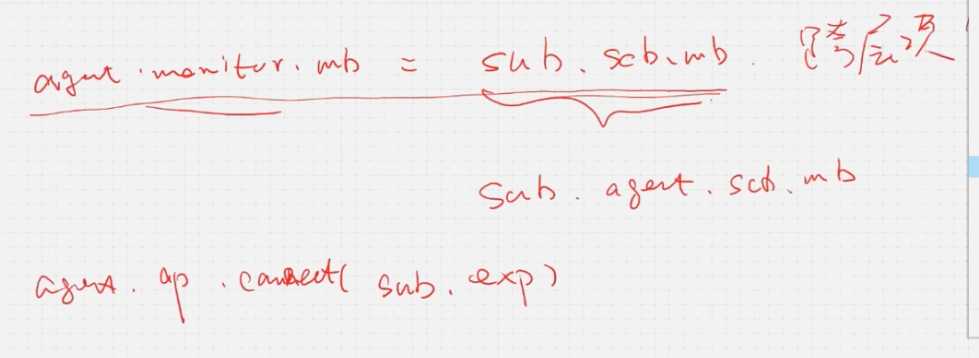 agent.monitor.mb = sub.scb.mb. 跨层次
sub.agent.scb.mb
agent.ap.connect(sub.exp)